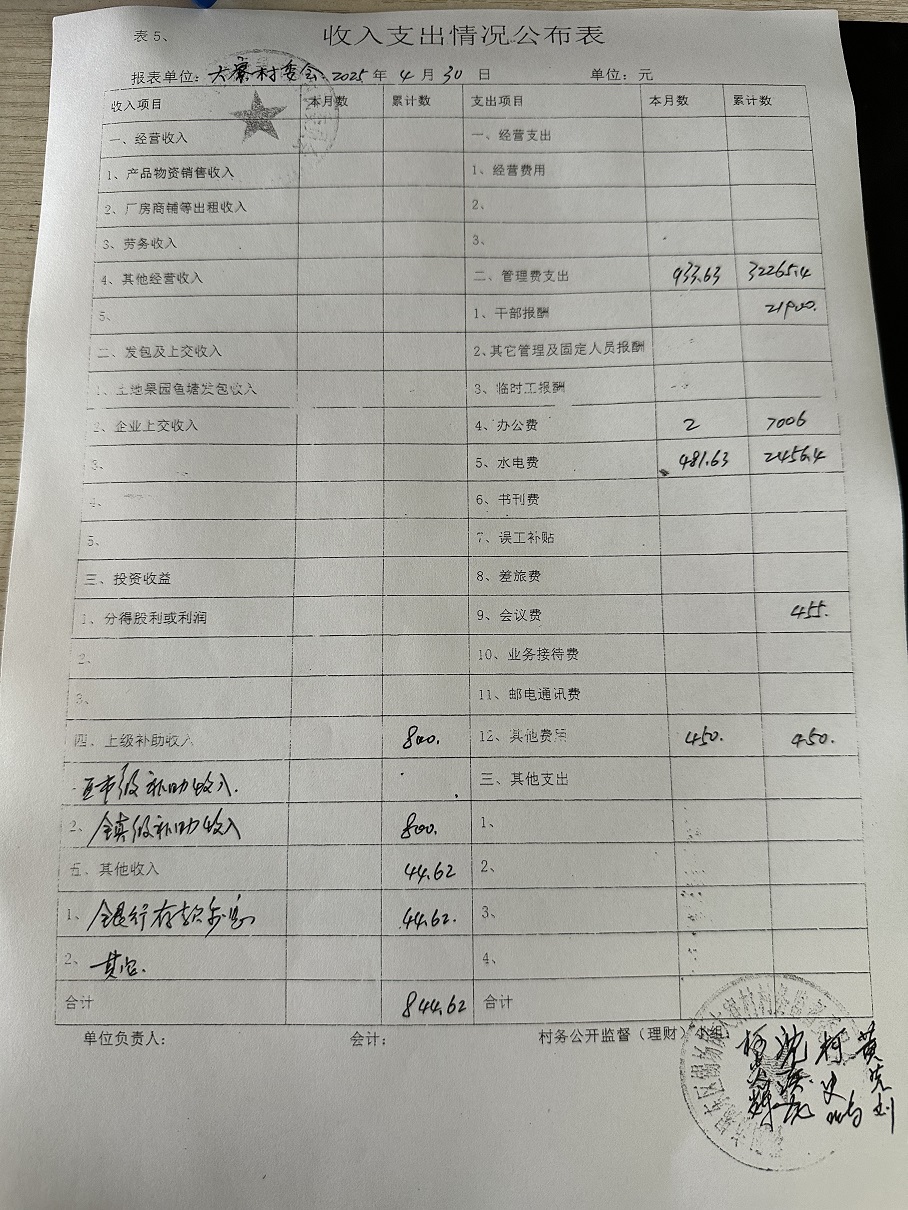 表 5、
收入支出情况公布表
报表单位：大寨村委会 2025 年 4 月 30 日 单位：元
收入项目 本月数 累计数 支出项目 本月数 累计数
一、经营收入 一、经营支出
1、产品物资销售收入 1、经营费用
2、厂房商铺等出租收入 2、
3、劳务收入 3、
4、其他经营收入 二、管理费支出 933.63 32265.4
5、 1、干部报酬 21900.
二、发包及上交收入 2、其它管理及固定人员报酬
1、土地果园鱼塘发包收入 3、临时工报酬
2、企业上交收入 4、办公费 2 7006
3、 5、水电费 481.63 2456.4
4、 6、书刊费
5、 7、误工补贴
三、投资收益 8、差旅费
1、分得股利或利润 9、会议费 455.
2、 10、业务接待费
3、 11、邮电通讯费
四、上级补助收入 800. 12、其他费用 450. 450.
市级补助收入. 三、其他支出
2、镇级补助收入 800. 1、
五、其他收入 44.62 2、
1、银行存款利息 44.62. 3、
2、其它. 4、
合计 844.62 合计
单位负责人： 会计： 村务公开监督（理财）小组：